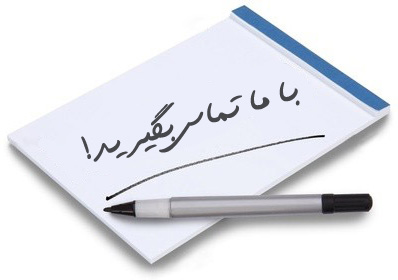 با ما تماس بگیرید!